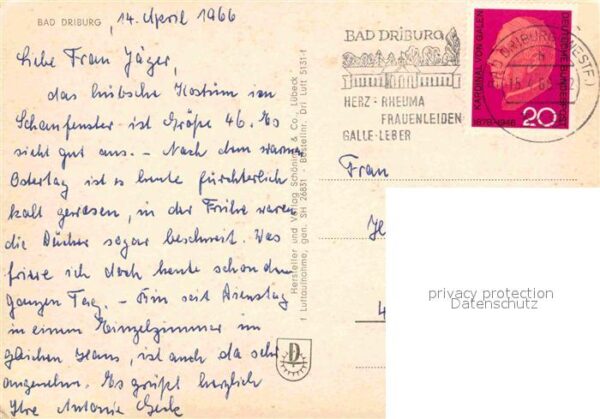 BAD DRIBURG, 14. April 1966
Liebe Frau Jäger,
das hübsche Kostüm im
Schaufenster ist Größe 46. Es
sieht gut aus. – Nach dem warmen
Ostertag ist es heute fürchterlich
kalt gewesen, in der Frühe waren
die Dächer sogar beschneit. Was
friere ich doch heute schon den
ganzen Tag. – Bin seit Dienstag
in einem Einzelzimmer im
gleichen Haus, ist auch da sehr
angenehm. Es grüßt herzlich
Ihre Antonie
Hersteller und Verlag Schöning & Co., Lübeck
† Luftaufnahme, gen. SH 26831 Bestellnr. Dri Luft 5131 t
D
BAD DRIBURG
HERZ · RHEUMA
FRAUENLEIDEN
GALLE · LEBER
KARDINAL VON GALEN
DEUTSCHE BUNDESPOST
1878-1946
20
DRIBURG (WESTF.)
Frau
privacy protection
Datenschutz